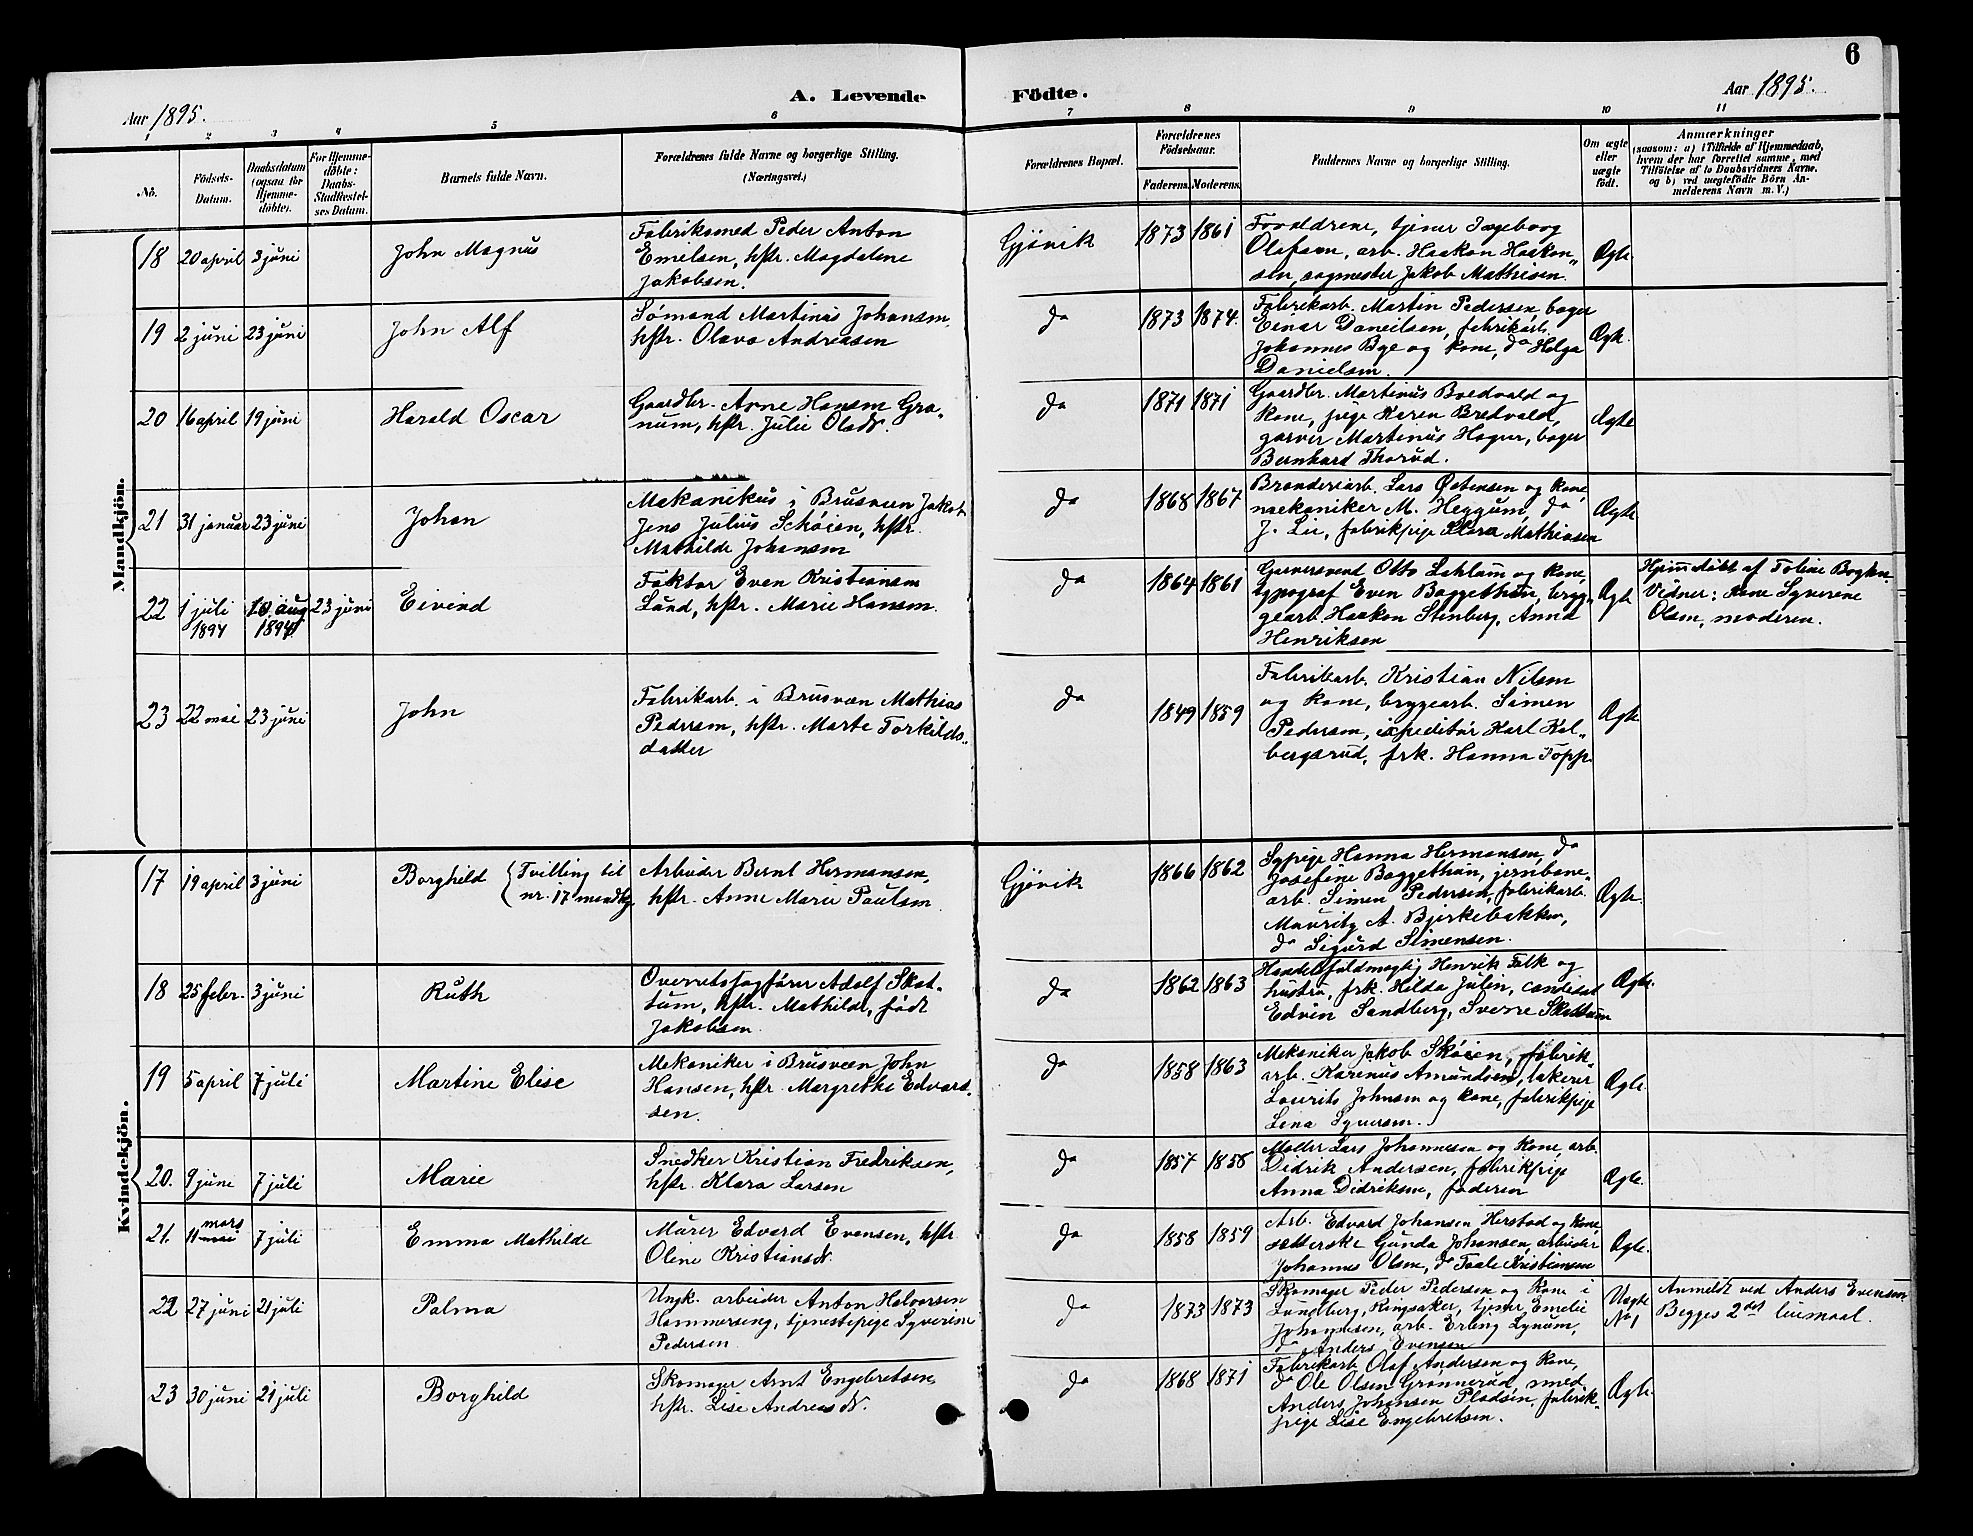 6
Aar 1895.
A. Levende Födte.
Aar 1895.
1 2 3 4 5 6 7 8 9 10 11
No.
Födsels-
Datum.
Daabsdatum
(ogsaa for
Hjemme-
döbte).
For Hjemme-
döbte:
Daabs-
Stadfæstel-
ses Datum.
Barnets fulde Navn.
Forældrenes fulde Navne og borgerlige Stilling.
(Næringsvei.)
Forældrenes Bopæl.
Forældrenes
Födselsaar.
Faderens. Moderens.
Faddernes Navne og borgerlige Stilling.
Om ægte
eller
uægte
födt.
Anmærkninger
(saasom: a) i Tilfælde af Hjemmedaab,
hvem der har forrettet samme, med
Tilföielse af to Daabsvidners Navne.
og b) ved uægtefödte Börn An-
melderens Navn m. V.)
Mandkjön.
18 20 april 3 juni John Magnus
Fabriksmed Peder Anton
Emilsen, hstr. Magdalene
Jakobsen.
Gjøvik 1873 1861
Forældrene, tjener Ingeborg
Olafsen, arb. Haakon Haakon-
sen, sagmester Jakob Mathisen.
Ægte.
19 2 juni 23 juni John Alf
Sømand Martinus Johansen,
hstr. Olava Andreasen
Do 1873 1874.
Fabrikarb. Martin Pedersen, bager
Einar Daneilsen, fabrikarb.
Johannes Bye og kone, Do Helga
Danielsen.
Ægte.
20 16 april 19 juni Harald Oscar
Gaardbr. Arne Hansen Gra-
num, hstr. Julie Olsdtr.
Do 1871 1871
Gaardbr. Martinus Bredvald og
kone, pige Karen Bredvald,
garver Martinus Hagen, bager
Bernhard Thorud.
Ægte
21 31 januar 23 juni Johan
Mekanikus i Brusveen Jakob
Jens Julius Schøien, hstr.
Mathilde Johansen
Do 1868 1867
Brænderiarb. Lars Østensen og kone,
mekaniker M. Heggum, Do
J. Lie, fabrikpige Klara Mathiasen
Ægte
22 1 juli
1894
10 aug
1894
23 juni Eivind
Faktor Even Kristiansen
Lund, hstr. Marie Hansen.
Do 1864 1861
Garversvend Otto Lahlum og kone,
typograf Even Baggethun, bryg-
gearb. Haakon Stenberg, Anna
Henriksen
Ægte
Hjemmedøbt af Toline
Vidner: Syverene
Olsen, moderen.
23 22 mai 23 juni John
Fabrikarb. i Brusveen Mathias
Pedersen, hstr. Marte Torkilds-
datter
Do 1849 1859
Fabrikarb. Kristian Nilsen
og kone, bryggearb. Simen
Pedersen, expeditør Karl Kol-
bergsrud, frk. Hanna Topp.
Ægte
Kvindekjön.
17 19 april 3 juni Borghild (Tvilling til
nr. 17 mandkj.
Arbeider Bernt Hermansen,
hstr. Anne Marie Paulsen
Gjøvik 1866 1862
Sypige Hanna Hermansen, Do
Josefine Baggethun, jernbane-
arb. Simen Pedersen, fabrikarb.
Mauritz A. Bjerkebakken,
Do Sigurd Simensen.
Ægte.
18 25 febr. 3 juni Ruth
Overretssagfører Adolf Skat-
tum, hstr. Mathilde, født
Jakobsen.
Do 1862 1863
Handelsfuldmægtig Henrik Falk og
hustru, frk. Hilda Julin, candidat
Edvin Sandberg, Sverre Skattum
Ægte.
19 5 april 7 juli Martine Elise
Mekaniker i Brusveen John
Hansen, hstr. Margrethe Edvard-
sen.
Do 1858 1863
Mekaniker Jakob Skøien, fabrik-
arb. Karenus Amundsen, lakerer
Laurits Johnsen og kone, fabrikpige
Lina Syversen.
Ægte.
20. 9 june 7 juli Marie
Snedker Kristian Fredriksen,
hstr. Klara Larsen
Do 1857 1858
Maler Lars Johannesen og kone, arb.
Didrik Andersen, fabrikpige
Anna Didriksen, faderen
Ægte.
21. 11 mars
mai
7 juli Emma Mathilde
Murer Edvard Evensen, hstr
Olene Kristiansdtr.
Do 1858 1859
Arb. Edvard Johansen Herstad og kone,
sætterske Gunda Johansen, arbeider
Johannes Olsen, Do Taale Kristiansen
Ægte.
22 27 juni 21 juli Palma
Ungk. arbeider Anton Halvorsen
Hammerseng, tjenestepige Syverine
Pedersen
Do 1873 1873
Skomager Peder Pedersen og kone i
Lundberg, Ringsaker, tjener Emelie
Johannesen, arb. Erling Lynum,
Do Anders Evensen
Uægte
No 1
Anmeldt ved Anders Evensen.
Begges 2det leiemaal.
23 30 juni 21 juli Borghild
Skomager Arnt Engebretsen,
hstr. Lise Andreasdtr.
Do 1868 1871
Fabrikarb Olaf Andersen og kone,
Do Ole Olsen Grønnerud, smed
Anders Johansen Pladsen, fabrik-
pige Lise Engebretsen.
Ægte.